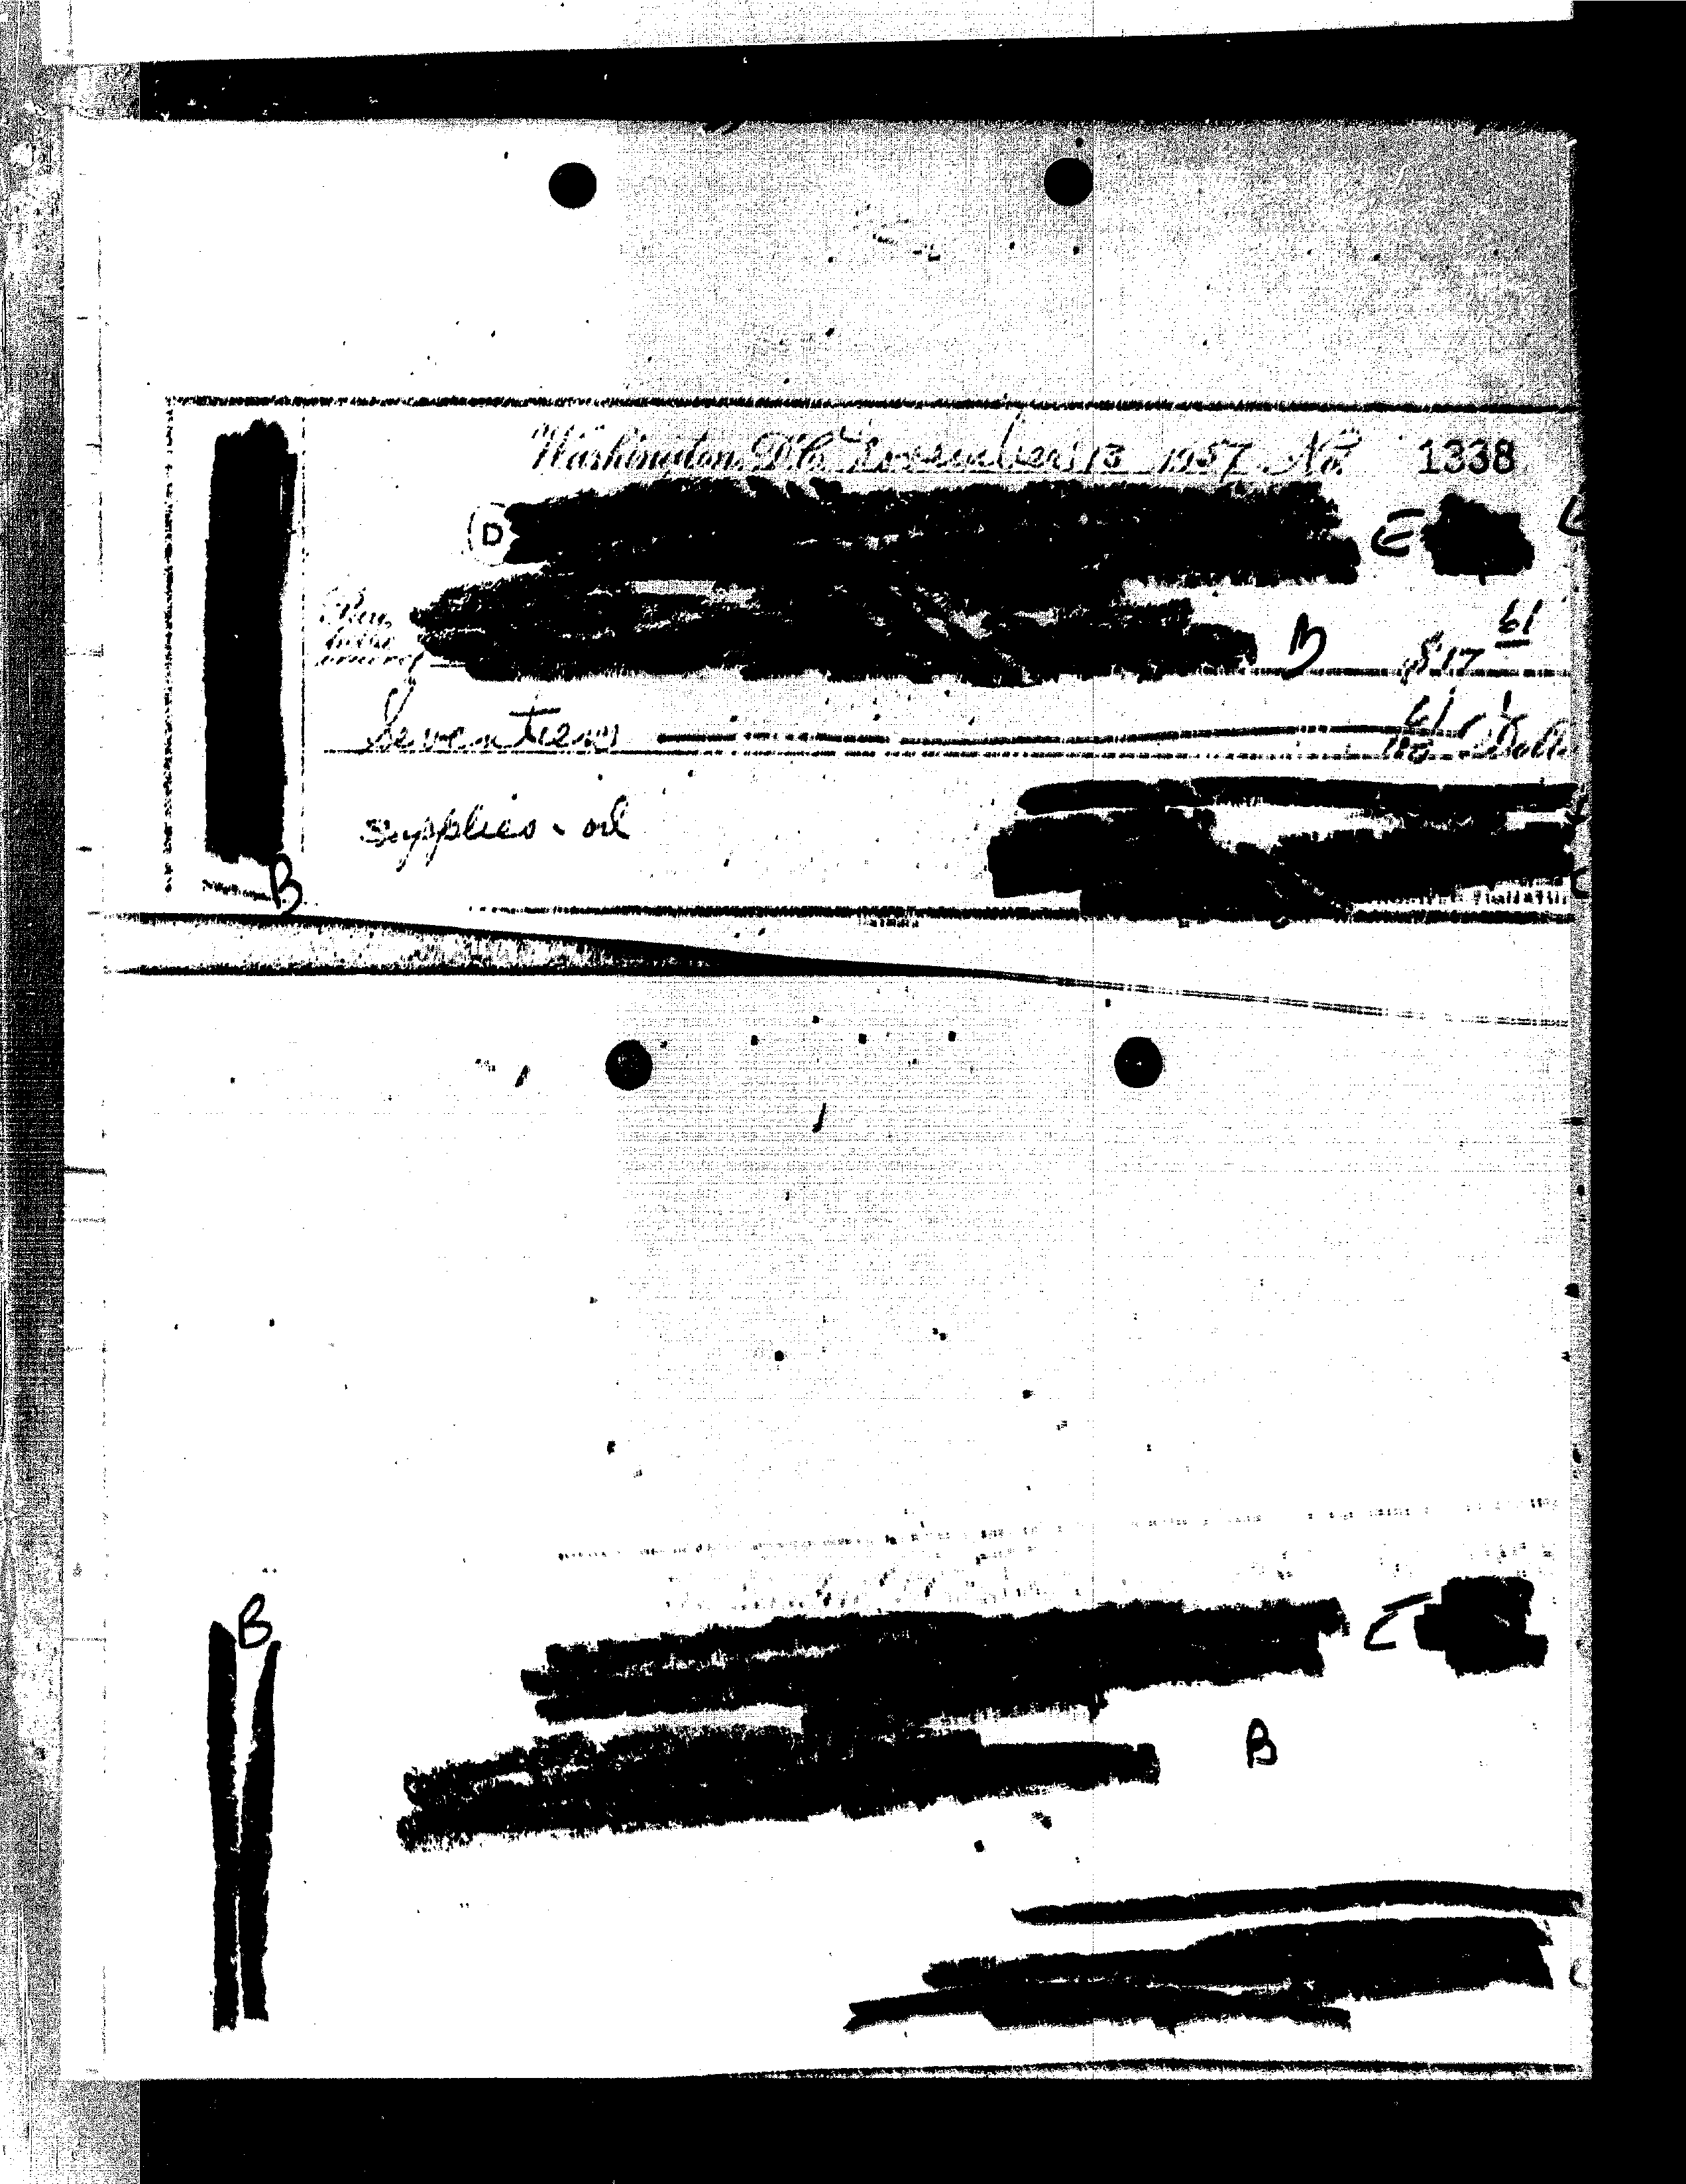 Washington, D.C. November 13 1957 No. 1338
D E
Pay
to the
order of B $17 61
Seventeen 61/100 Dolla
supplies - oil
B
B E
B